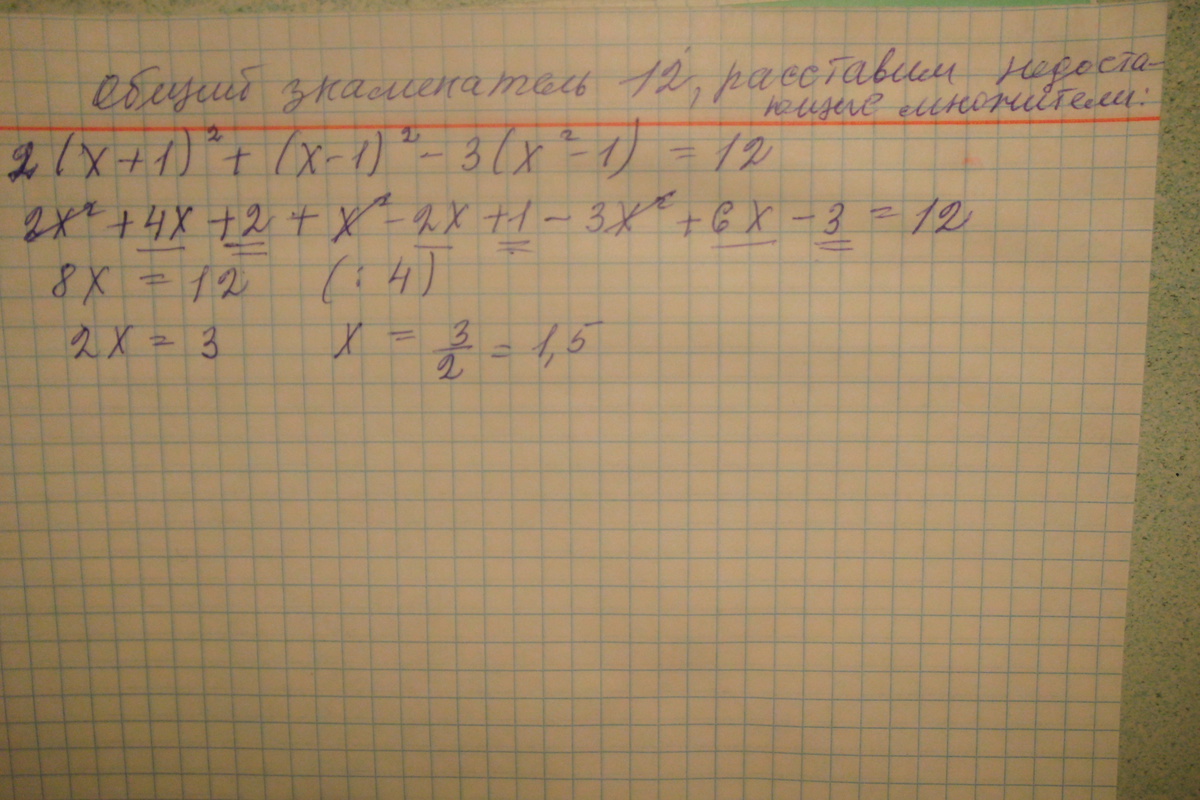 Общий знаменатель 12, расставим недоста-
ющие множители:
2(x+1)² + (x-1)² - 3(x²-1) = 12
2x² + 4x + 2 + x² - 2x + 1 - 3x² + 6x - 3 = 12
8x = 12 (: 4)
2x = 3 x = 3/2 = 1,5